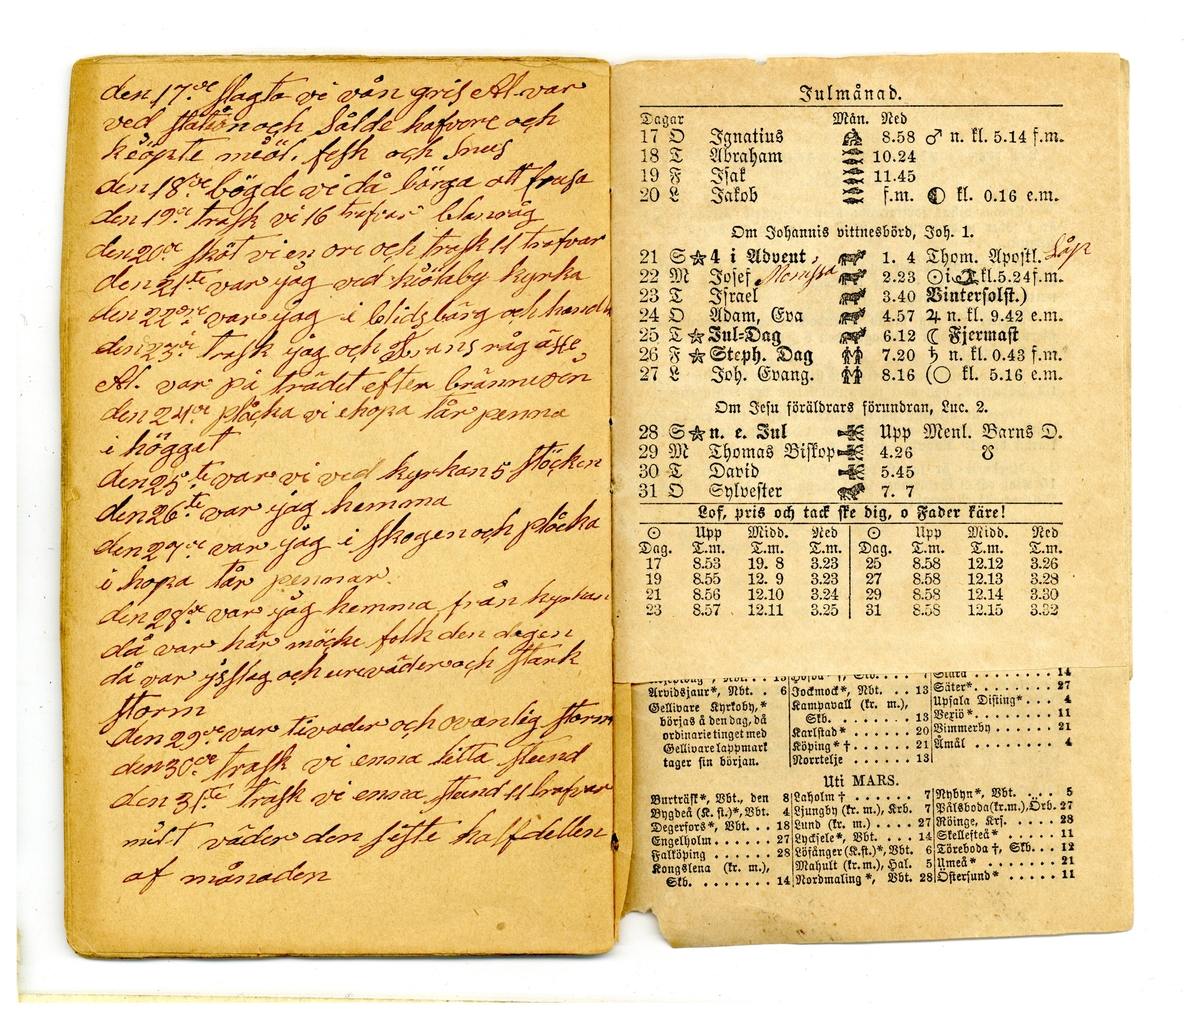 den 17de slagta vi vån gris Al. var
ved station och Sålde hafvore och
kiöpte miöl. fesk och Snus
den 18de bögde vi då börga att frasa
den 19de trask vi 16 trafvar blanråg
den 20de sköt vi en ore och trask 11 trafvar
den 21te var jag ved kiötaby kyrka
den 22dre var jag i blidsbärg och handla
den 23di trask jag och Svans råg åsse
Al. var på trädet efter brännevin
den 24de plåcka vi ehopa tår penna
i högget
den 25te var vi ved kyrkan 5 stöcken
den 26te var jag hemma
den 27de var jag i skogen och plåcka
i hopa tår pennar.
den 28de var jag hemma från kyrkan
då var här möcke folk den dagen
då var ysslag och urväder och stark
storm
den 29de var tivader och ovanlig storm
den 30de trask vi enna litta stund
den 31te trask vi enna stund 11 trafvar
milt väder den siste halfdellen
af månaden
Julmånad.
Dagar Mån. Ned
17 O Ignatius 8.58 ♂ n. kl. 5.14 f.m.
18 T Abraham 10.24
19 F Isak 11.45
20 L Jakob f.m. kl. 0.16 e.m.
Om Johannis vittnesbörd, Joh. 1.
21 S ☆ 4 i Advent, 1. 4 Thom. Apostl.
22 M Josef 2.23 ☉ i kl. 5.24 f.m.
23 T Israel 3.40 Vintersolst.)
24 O Adam, Eva 4.57 ♃ n. kl. 9.42 e.m.
25 T ☆ Jul-Dag 6.12 ☾ Fjermast
26 F ☆ Steph. Dag 7.20 ♄ n. kl. 0.43 f.m.
27 L Joh. Evang. 8.16 (○ kl. 5.16 e.m.
Om Jesu föräldrars förundran, Luc. 2.
28 S ☆ n. e. Jul Upp Menl. Barns D.
29 M Thomas Biskop 4.26 ☋
30 T David 5.45
31 O Sylvester 7. 7
Lof, pris och tack ske dig, o Fader käre!
☉ Upp Midd. Ned ☉ Upp Midd. Ned
Dag. T.m. T.m. T.m. Dag. T.m. T.m. T.m.
17 8.53 19. 8 3.23 25 8.58 12.12 3.26
19 8.55 12. 9 3.23 27 8.58 12.13 3.28
21 8.56 12.10 3.24 29 8.58 12.14 3.30
23 8.57 12.11 3.25 31 8.58 12.15 3.32
Arvidsjaur*, Nbt. . 6
Gellivare Kyrkoby,*
börjas å den dag, då
ordinarie tinget med
Gellivare lappmark
tager sin början.
Jockmock*, Nbt. . 13
Kampavall (kr. m.),
Skb. . . . . . . . 13
Karlstad* . . . . . 20
Köping* † . . . . . 21
Norrtelje . . . . . 13
Skara . . . . . . . 14
Säter* . . . . . . . 27
Upsala Disting* . . . 4
Vexiö* . . . . . . . 11
Vimmerby . . . . . . 21
Åmål . . . . . . . . 4
Uti MARS.
Burträsk*, Vbt., den 8
Bygdeå (K. st.)*, Vbt. 4
Degerfors*, Vbt. . . 18
Engelholm . . . . . . 27
Falköping . . . . . . 28
Kongslena (kr. m.),
Skb. . . . . . . . 14
Laholm † . . . . . . 7
Ljungby (kr. m.), Krb. 7
Lund (kr. m.) . . . . 27
Lycksele*, Vbt. . . . 14
Lösånger (K.st.)*, Vbt. 6
Mahult (kr.m.), Hal. 5
Nordmaling*, Vbt. 28
Nybyn*, Vbt. . . . . 5
Pålsboda (kr.m.), Örb. 27
Röinge, Krs. . . . . 28
Skellefteå* . . . . . 11
Töreboda †, Skb. . . 12
Umeå* . . . . . . . 21
Östersund* . . . . . 11